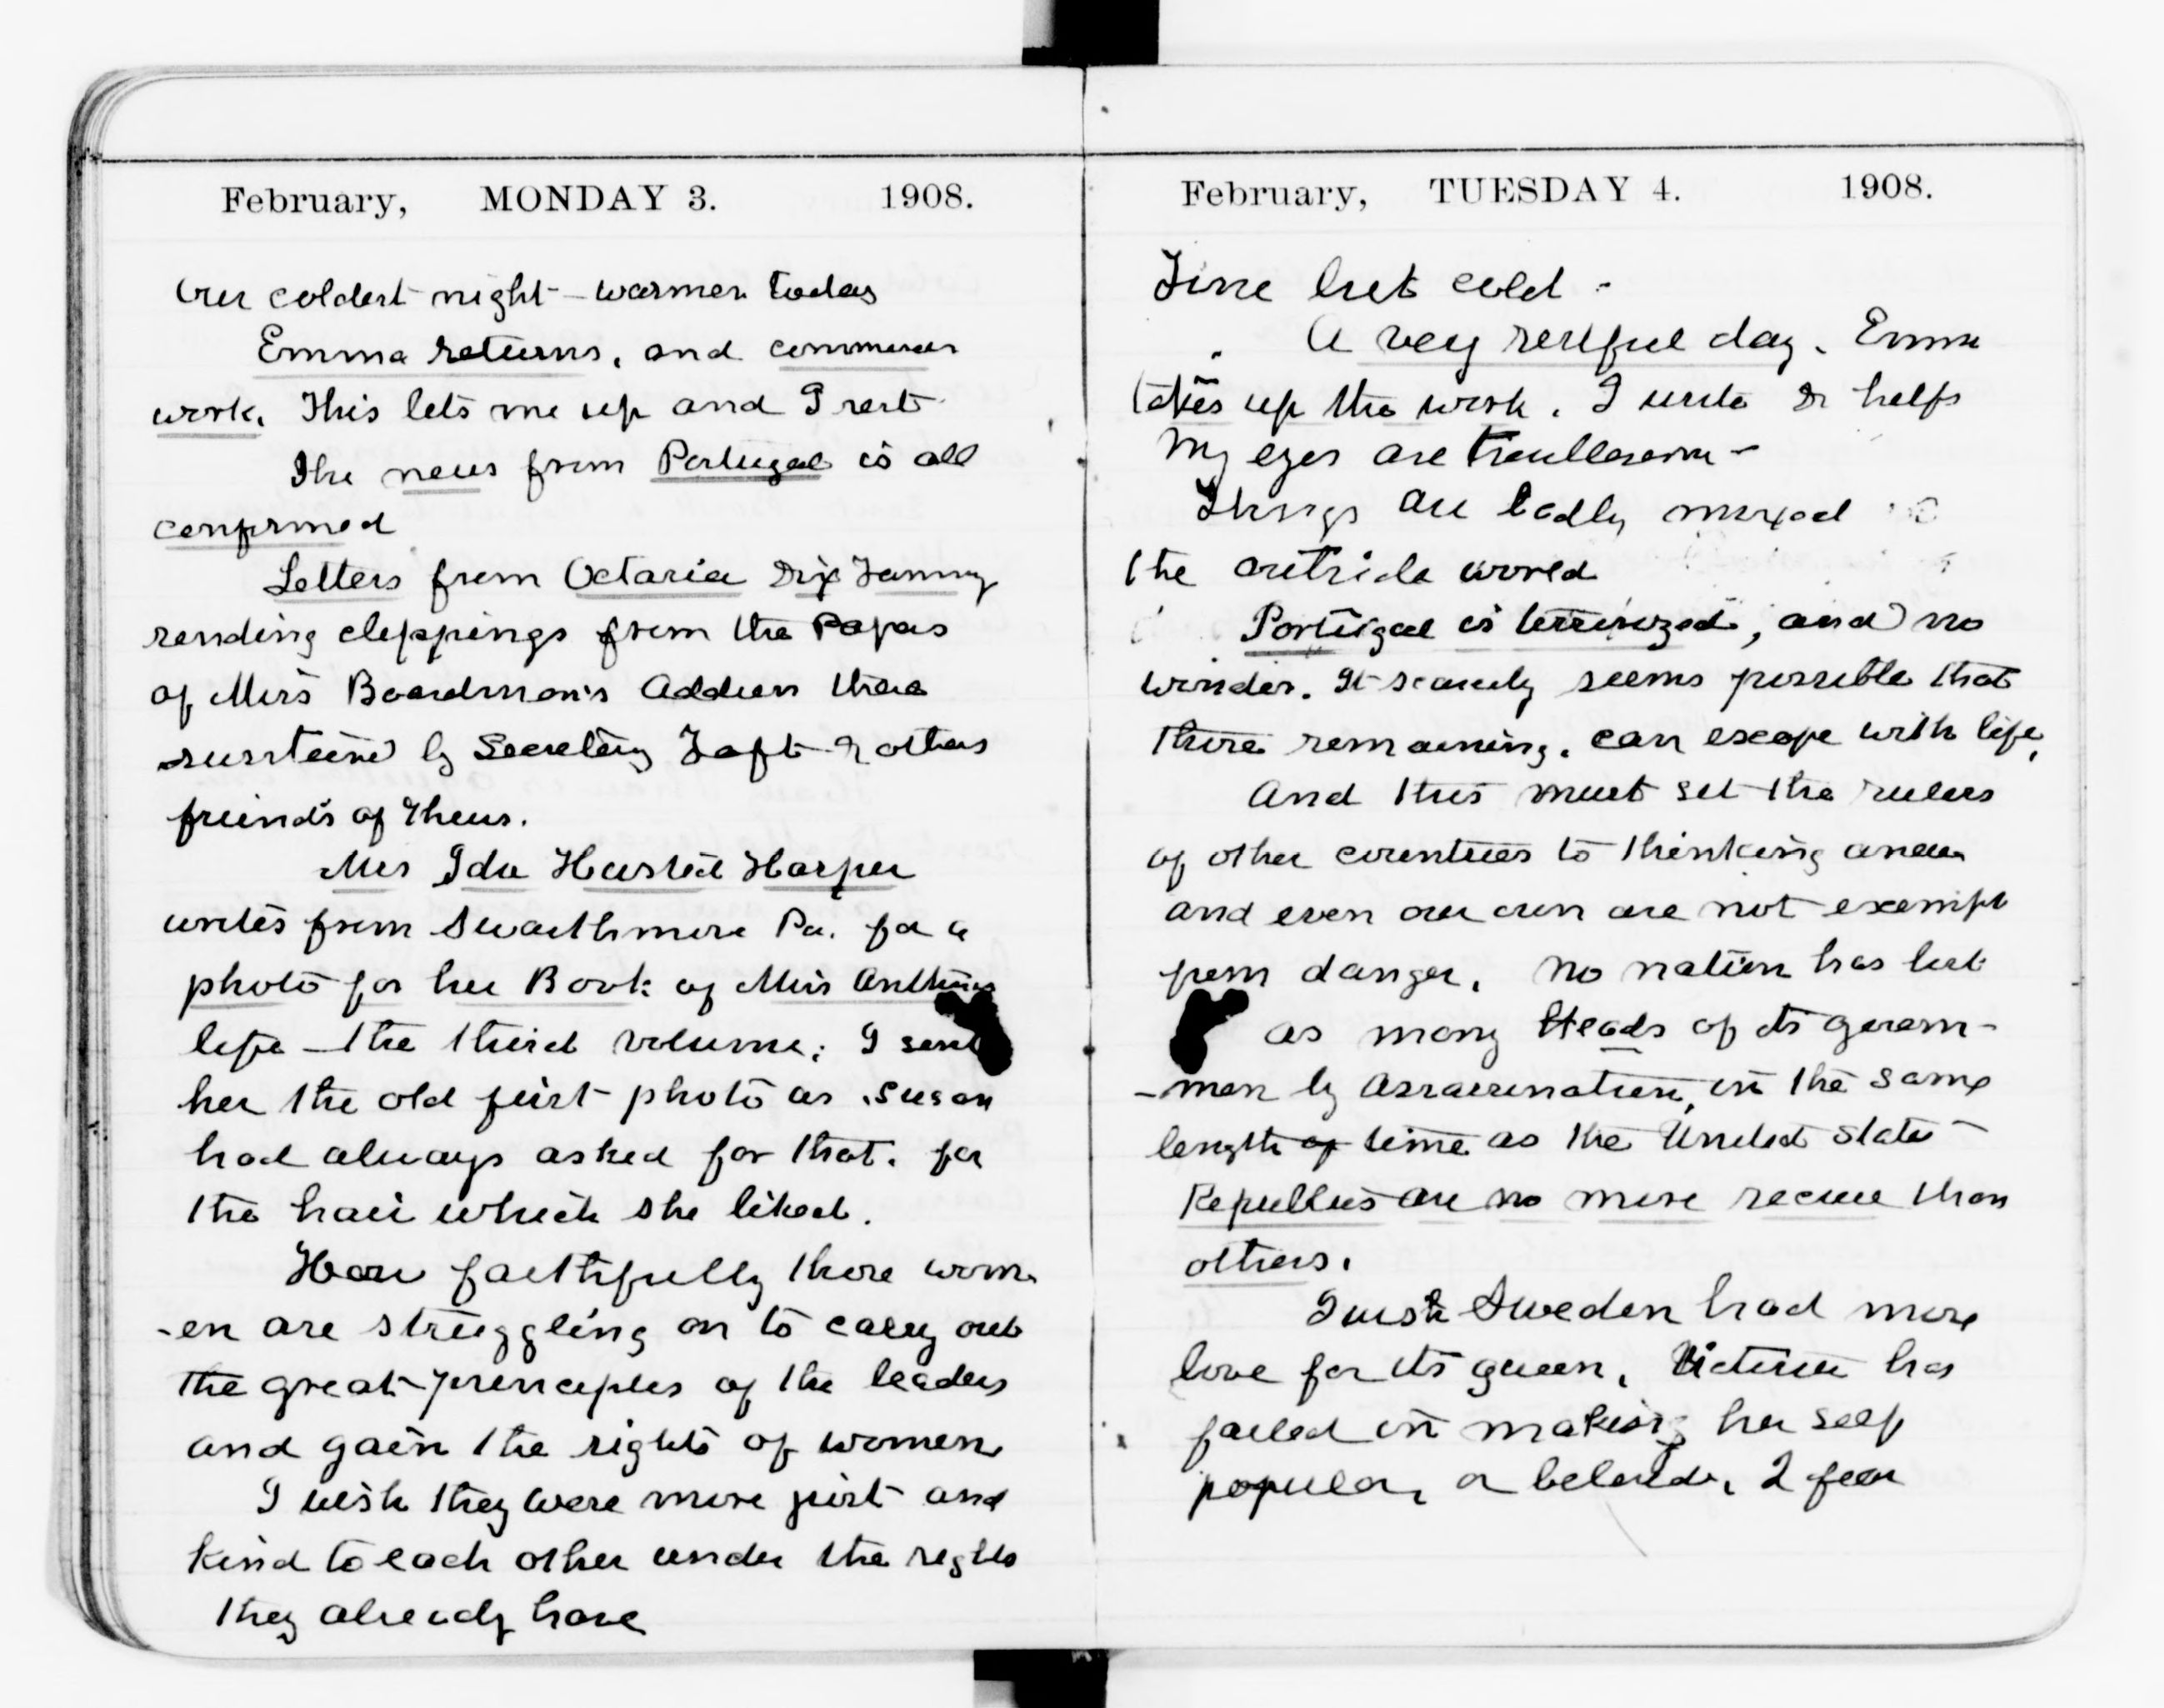 February, MONDAY 3. 1908.
Our coldest night - warmer today
Emma returns, and commences
work. This lets me up and I rest
The news from Portugal is all
confirmed
Letters from Octavia Dix
sending clippings from the Papers
of Miss Boardman's Address there
by Secretary Taft & others
friends of theirs.
Mrs Ida Husted Harper
writes from Swarthmore Pa. for a
photo for her Book of Miss Anthonys
life - the third volume; I sent
her the old first photo as Susan
had always asked for that. for
the hair which she liked.
How faithfully these wom
-en are struggling on to carry out
the great principles of the leaders
and gain the rights of women
I wish they were more just and
kind to each other under the rights
they already have
February, TUESDAY 4. 1908.
Fine but cold -
A very restful day. Emma
takes up the work. I write Dr helps
My eyes are troublesom -
Things are badly mixed
the outside world
Portugal is terrorized, and no
wonder. It scarcely seems possible that
those remaining, can escape with life,
And this must set the rulers
of other countries to thinking anew
and even our own are not exempt
from danger. No nation has lost
as many Heads of its govern-
-men by assassination, in the same
length of time as the United States
Republics are no more secure than
others.
I wish Sweden had more
love for its queen, Victoria has
failed in making her self
popular, or beloved, I fear